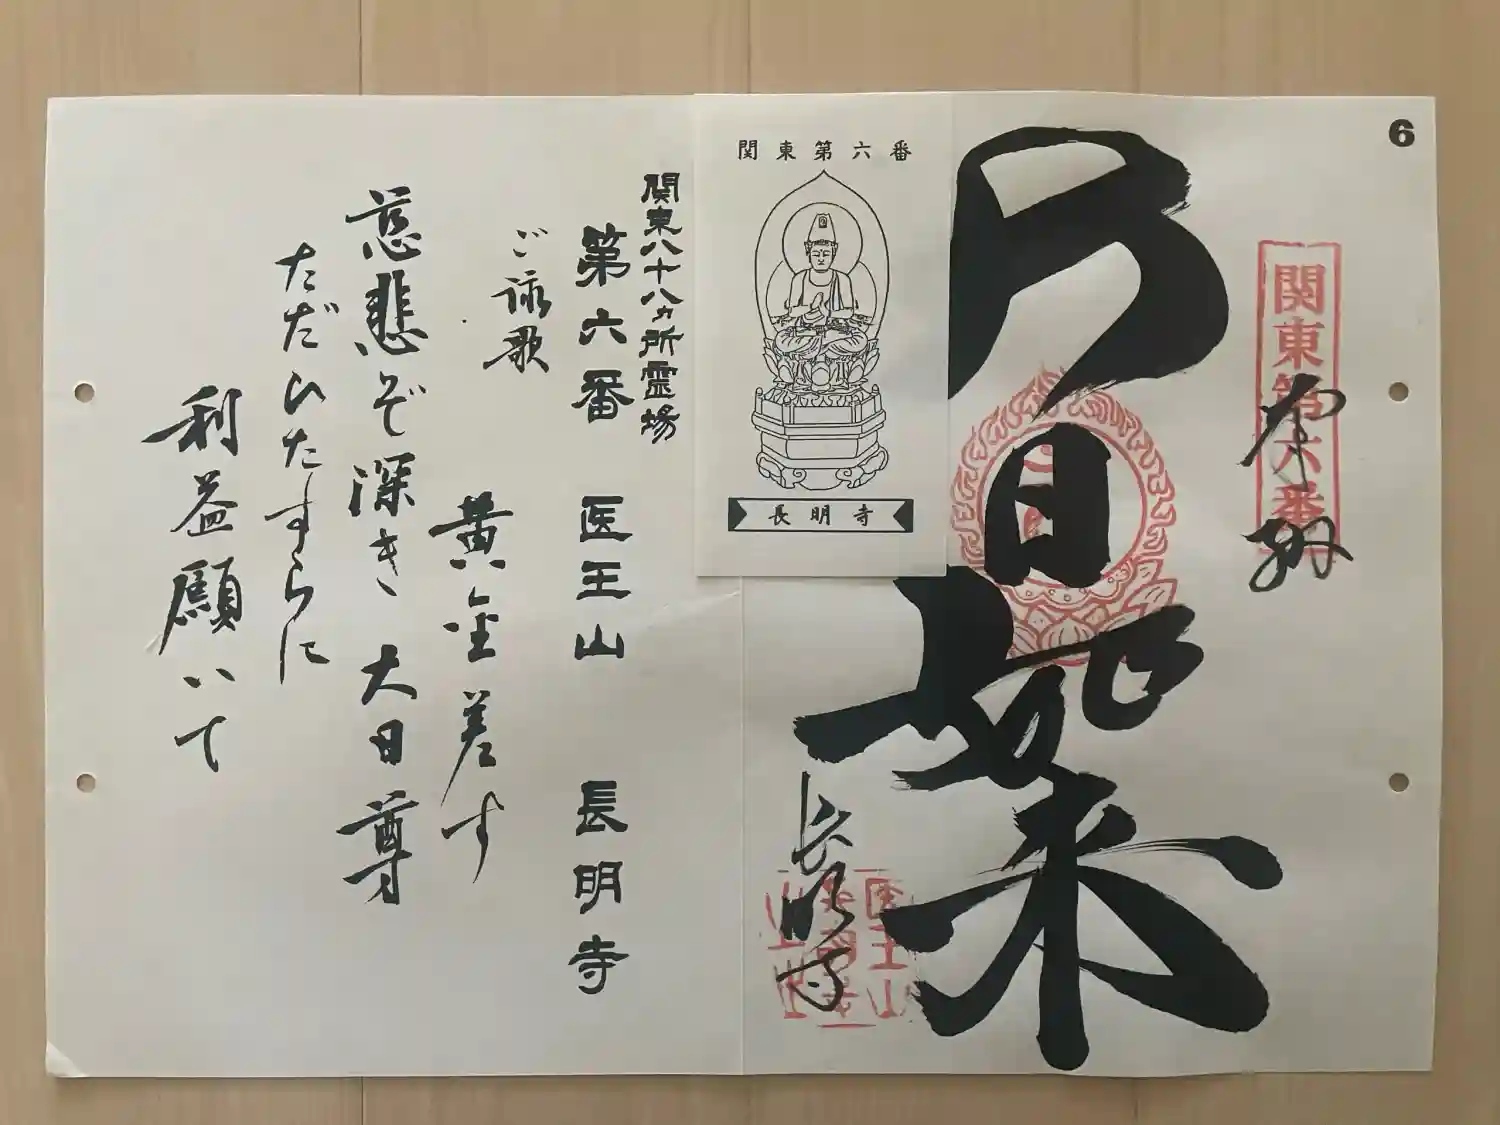 6
関東第六番
奉納
大日如来
長明寺
医王山
関東第六番
長明寺
関東八十八ヵ所霊場
第六番 医王山 長明寺
ご詠歌
黄金差す
慈悲ぞ深き 大日尊
ただひたすらに
利益願いて